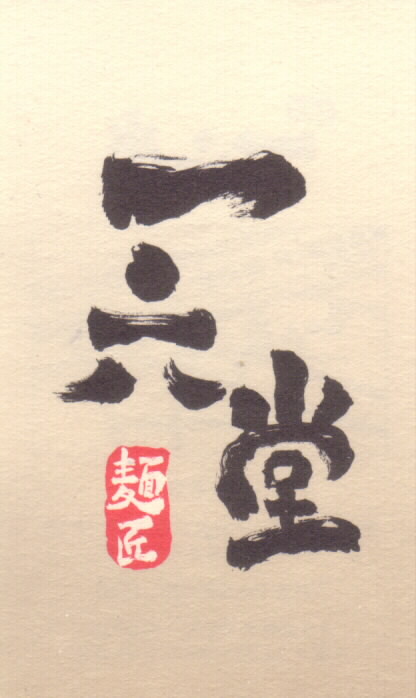 一六堂
麺匠